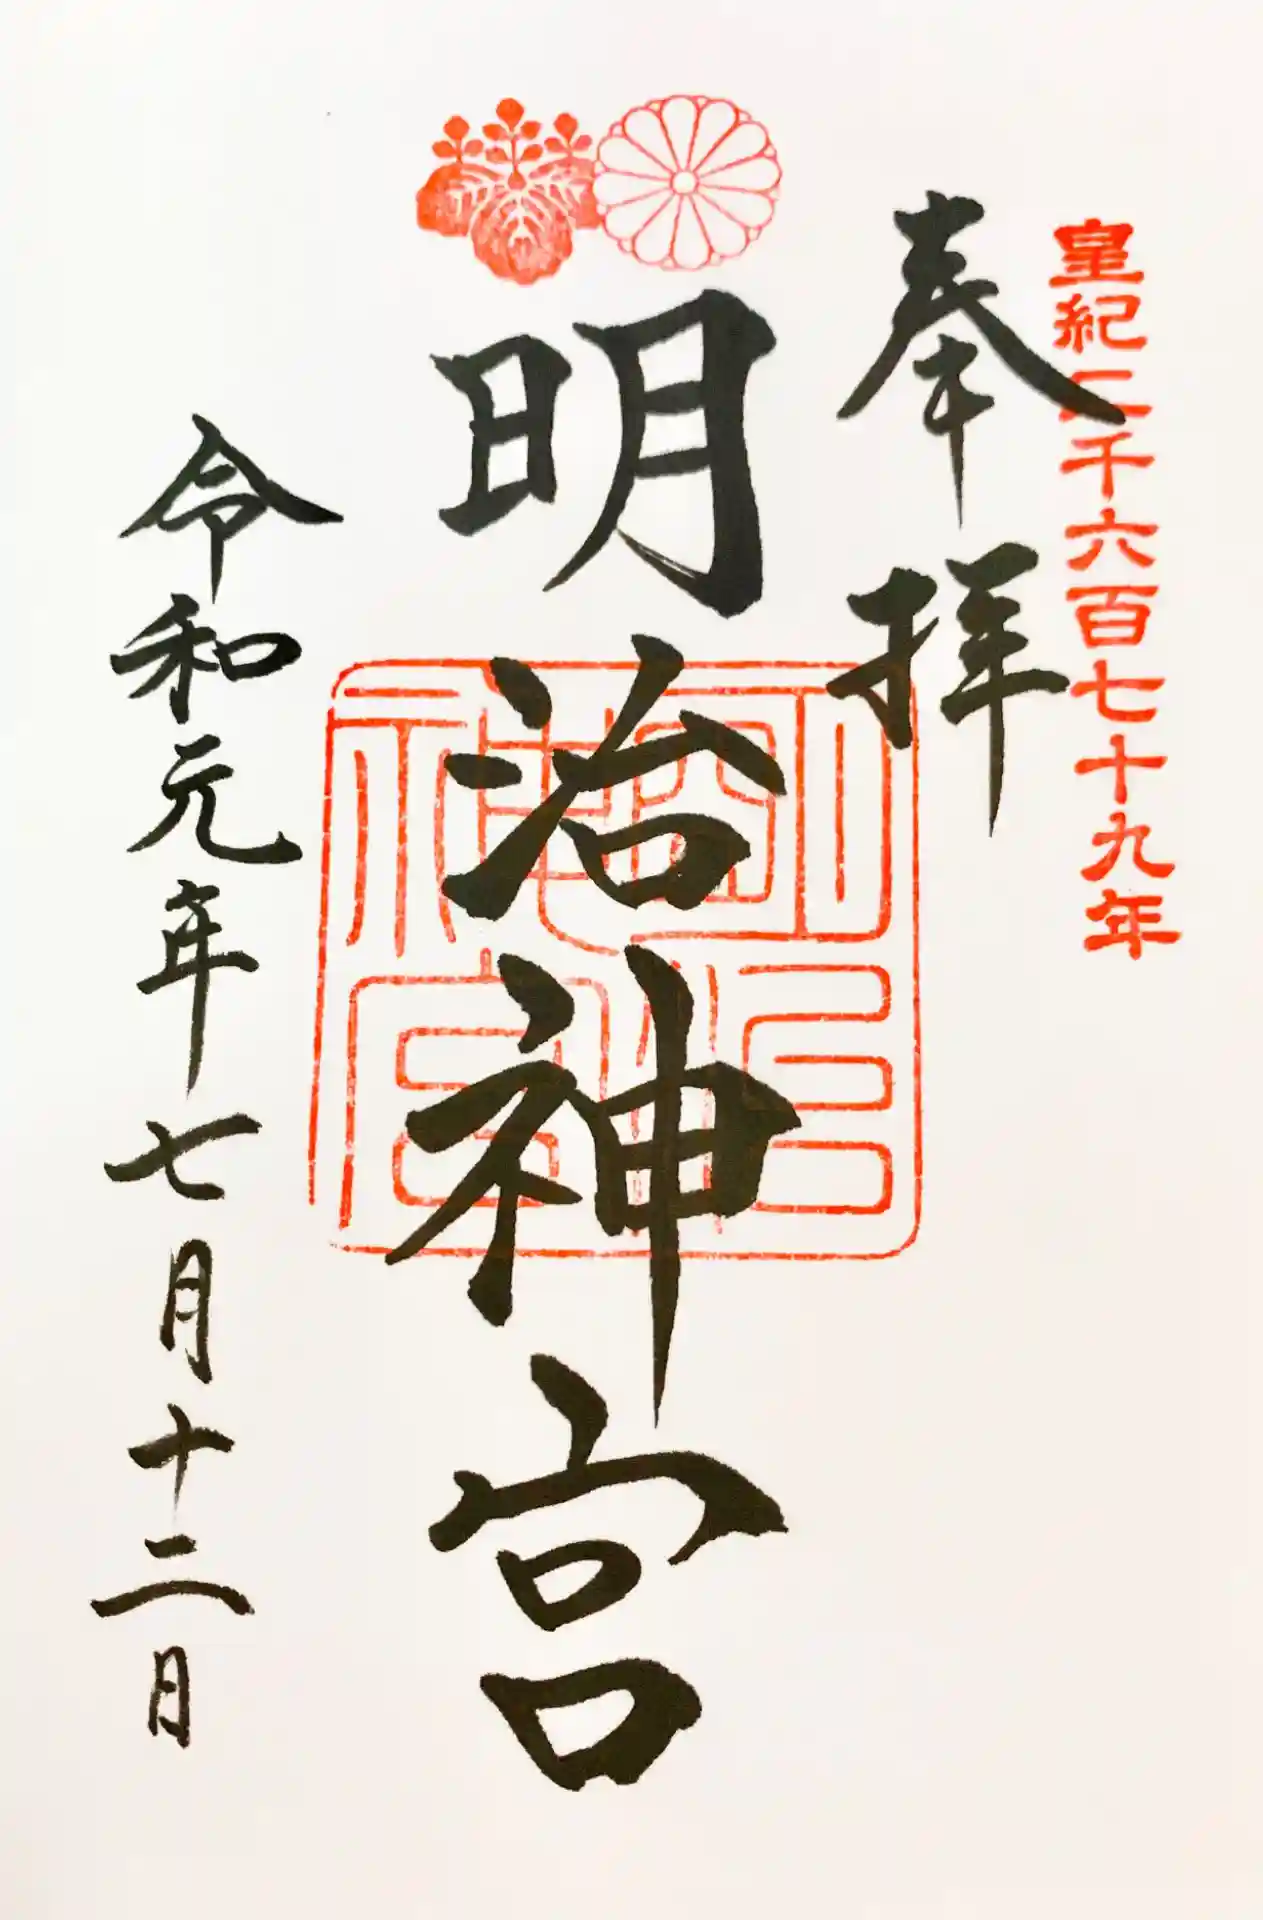 皇紀二千六百七十九年
奉拝
明治神宮
明治神宮
令和元年七月十二日